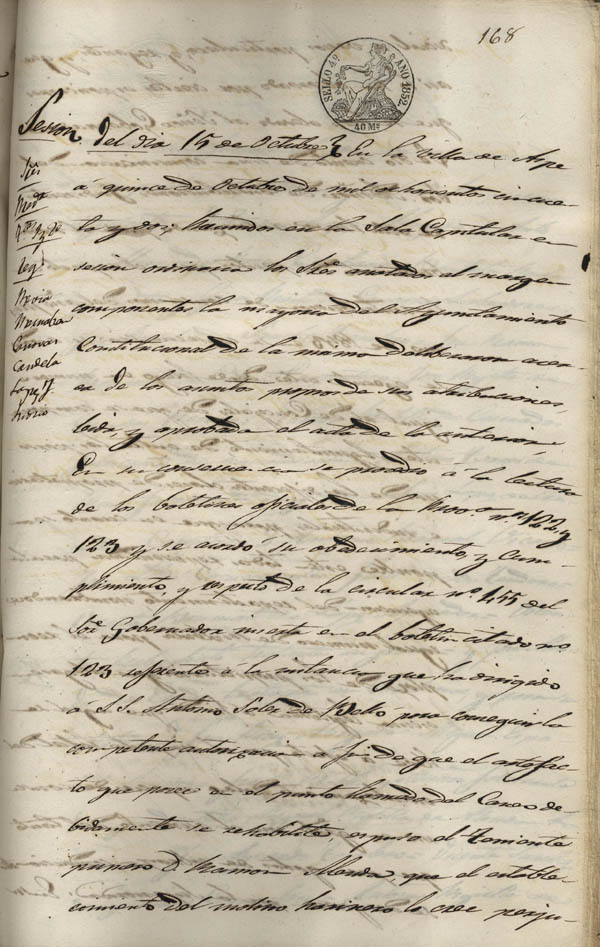 168
SELLO 4º AÑO 1852
40 Ms
Sesion del dia 15 de Octubre En la villa de Aspe
á quince de Octubre de mil ochocientos cincuen
ta y dos; reunidos en la Sala Capitular en
sesion ordinaria los Sres anotados al margen
componentes la mayoria del Ayuntamiento
Constitucional de la misma deliberaron acer
ca de los asuntos propios de sus atribuciones,
leida, y aprobada el acta de la anterior,
En su consecuencia se procedió á la lectura
de los boletines oficiales de la Prov.ª nos 122 y
123 y se acordó su obedecimiento, y cum-
plimiento, y respecto de la circular nº 455 del
Sor Gobernador inserta en el boletin citado no
123 referente á la instancia que ha dirigido
á S.S. Antonio Soler de para conseguir la
competente autorizacion a fin de que el artefac-
to que posee en el punto llamado del de-
bidamente se rehabilite, espuso el Teniente
primero D. Ramon que el estable-
cimiento del molino harinero lo cree perju-
Sres
Regs
Candela
Lopez y